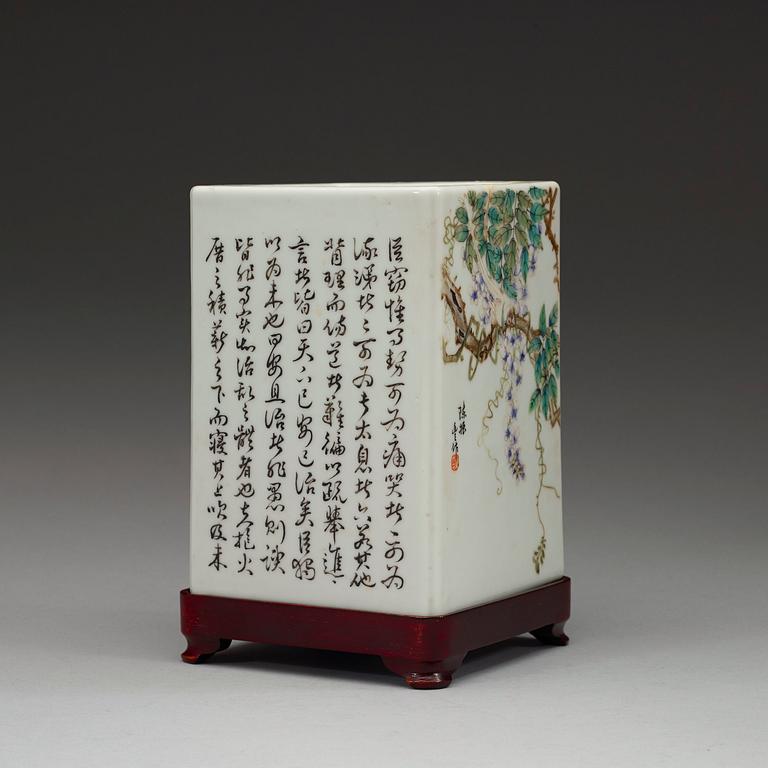 臣竊惟事勢可為痛哭者一可為
流涕者二可為長太息者六若其他
背理而傷道者難徧以疏舉進
言者皆曰天下已安已治矣臣獨
以為未也曰安且治者非愚則諛
皆非事實知治亂之體者也夫抱火
厝之積薪之下而寢其上火及未